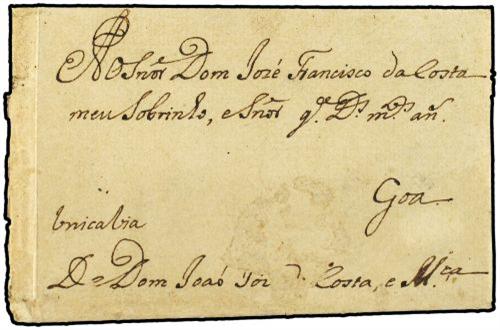 Ao Snõr Dom Jozé Francisco da Costa
meu Sobrinho, e Snõr q. Ds. ms. an.
Goa
Unica via
De Dom Joaõ da Costa, e